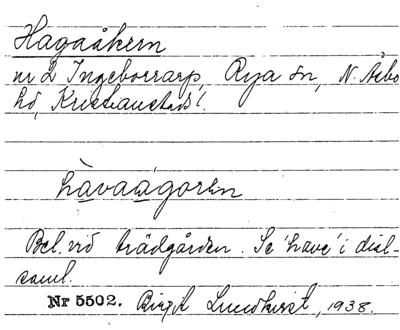 Hagaåkern
nr 2 Ingeborrarp, Rya sn, N. Åsbo
hd, Kristianstads l.
hàvaágoren
Bel. vid trädgården. Se 'have' i dial-
saml.
Nr 5502. Birgit Lundkvist, 1938.